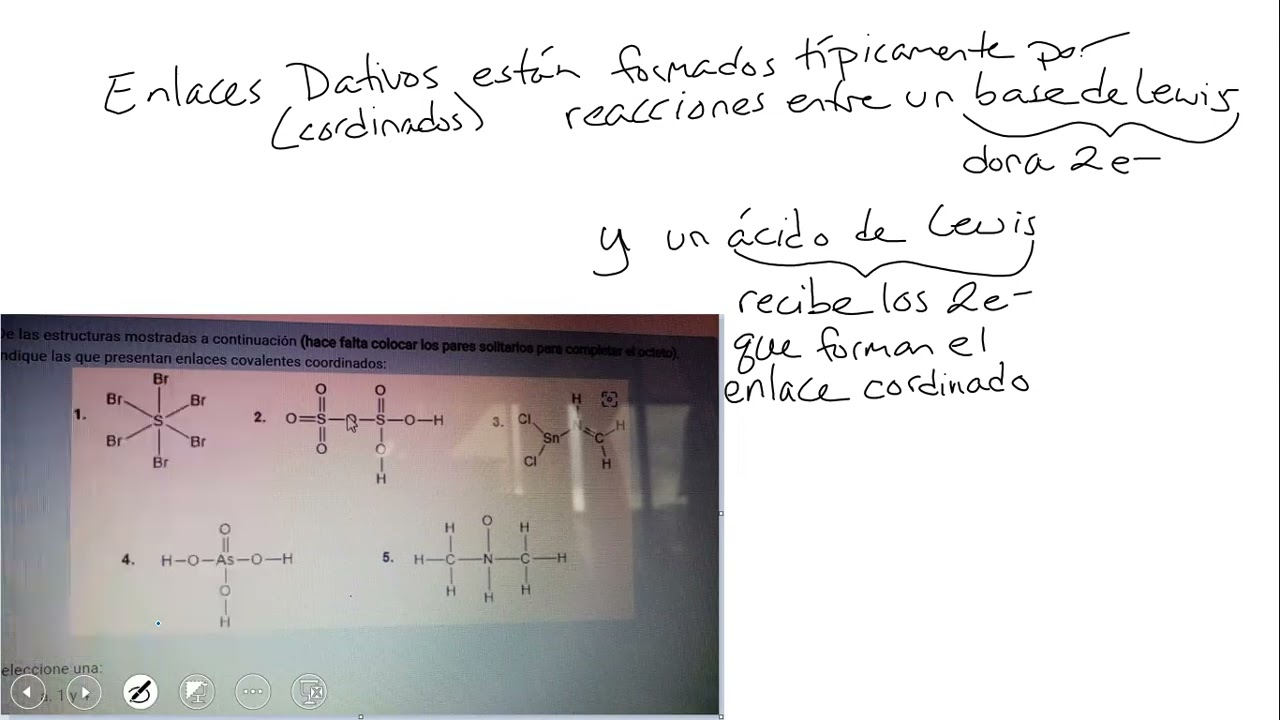 Enlaces Dativos están formados típicamente por
(cordinados) reacciones entre un base de Lewis
dona 2e-
y un ácido de Lewis
recibe los 2e-
que forman el
enlace cordinado
De las estructuras mostradas a continuación (hace falta colocar los pares solitarios para completar el octeto),
ndique las que presentan enlaces covalentes coordinados:
1. Br Br Br S Br Br Br
2. O O O=S S-O-H O O H
3. Cl Sn Cl H N=C H H
4. O H-O-As-O-H O H
5. H O H H-C-N-C-H H H H
eleccione una:
a. 1 y